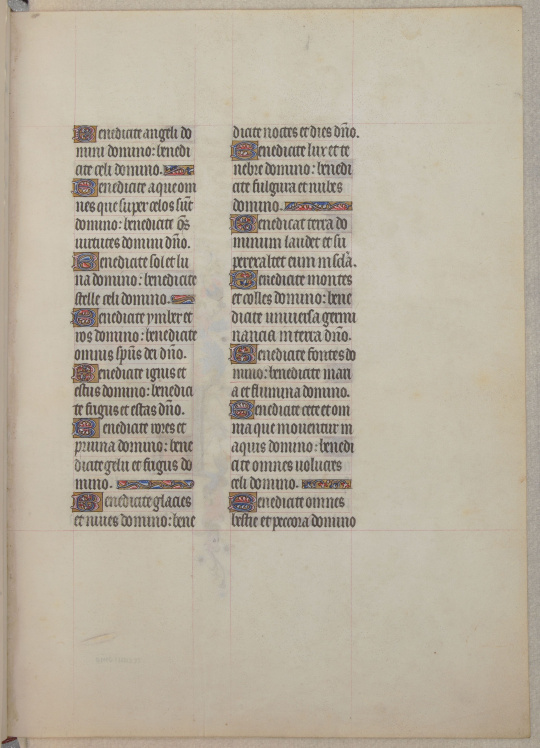 Benedicite angeli do
mini domino: benedi
cite celi domino.
Benedicite aque om
nes que super celos sūt
domino: benedicite om̄s
uirtutes domini dn̄o.
Benedicite sol et lu
na domino: benedicite
stelle celi domino.
Benedicite ymber et
ros domino: benedicite
omnis sp̄us dei dn̄o.
Benedicite ignis et
estus domino: benedici
te frigus et estas dn̄o.
Benedicite rores et
pruina domino: bene
dicite gelu et frigus do
mino.
Benedicite glacies
et niues domino: bene
dicite noctes et dies dn̄o.
Benedicite lux et te
nebre domino: benedi
cite fulgura et nubes
domino.
Benedicat terra do
minum laudet et su
perexaltet eum in sc̄la.
Benedicite montes
et colles domino: bene
dicite uniuersa germi
nancia in terra dn̄o.
Benedicite fontes do
mino: benedicite mari
a et flumina domino.
Benedicite cete et om
nia que mouentur in
aquis domino: benedi
cite omnes uolucres
celi domino.
Benedicite omnes
bestie et peccora domino